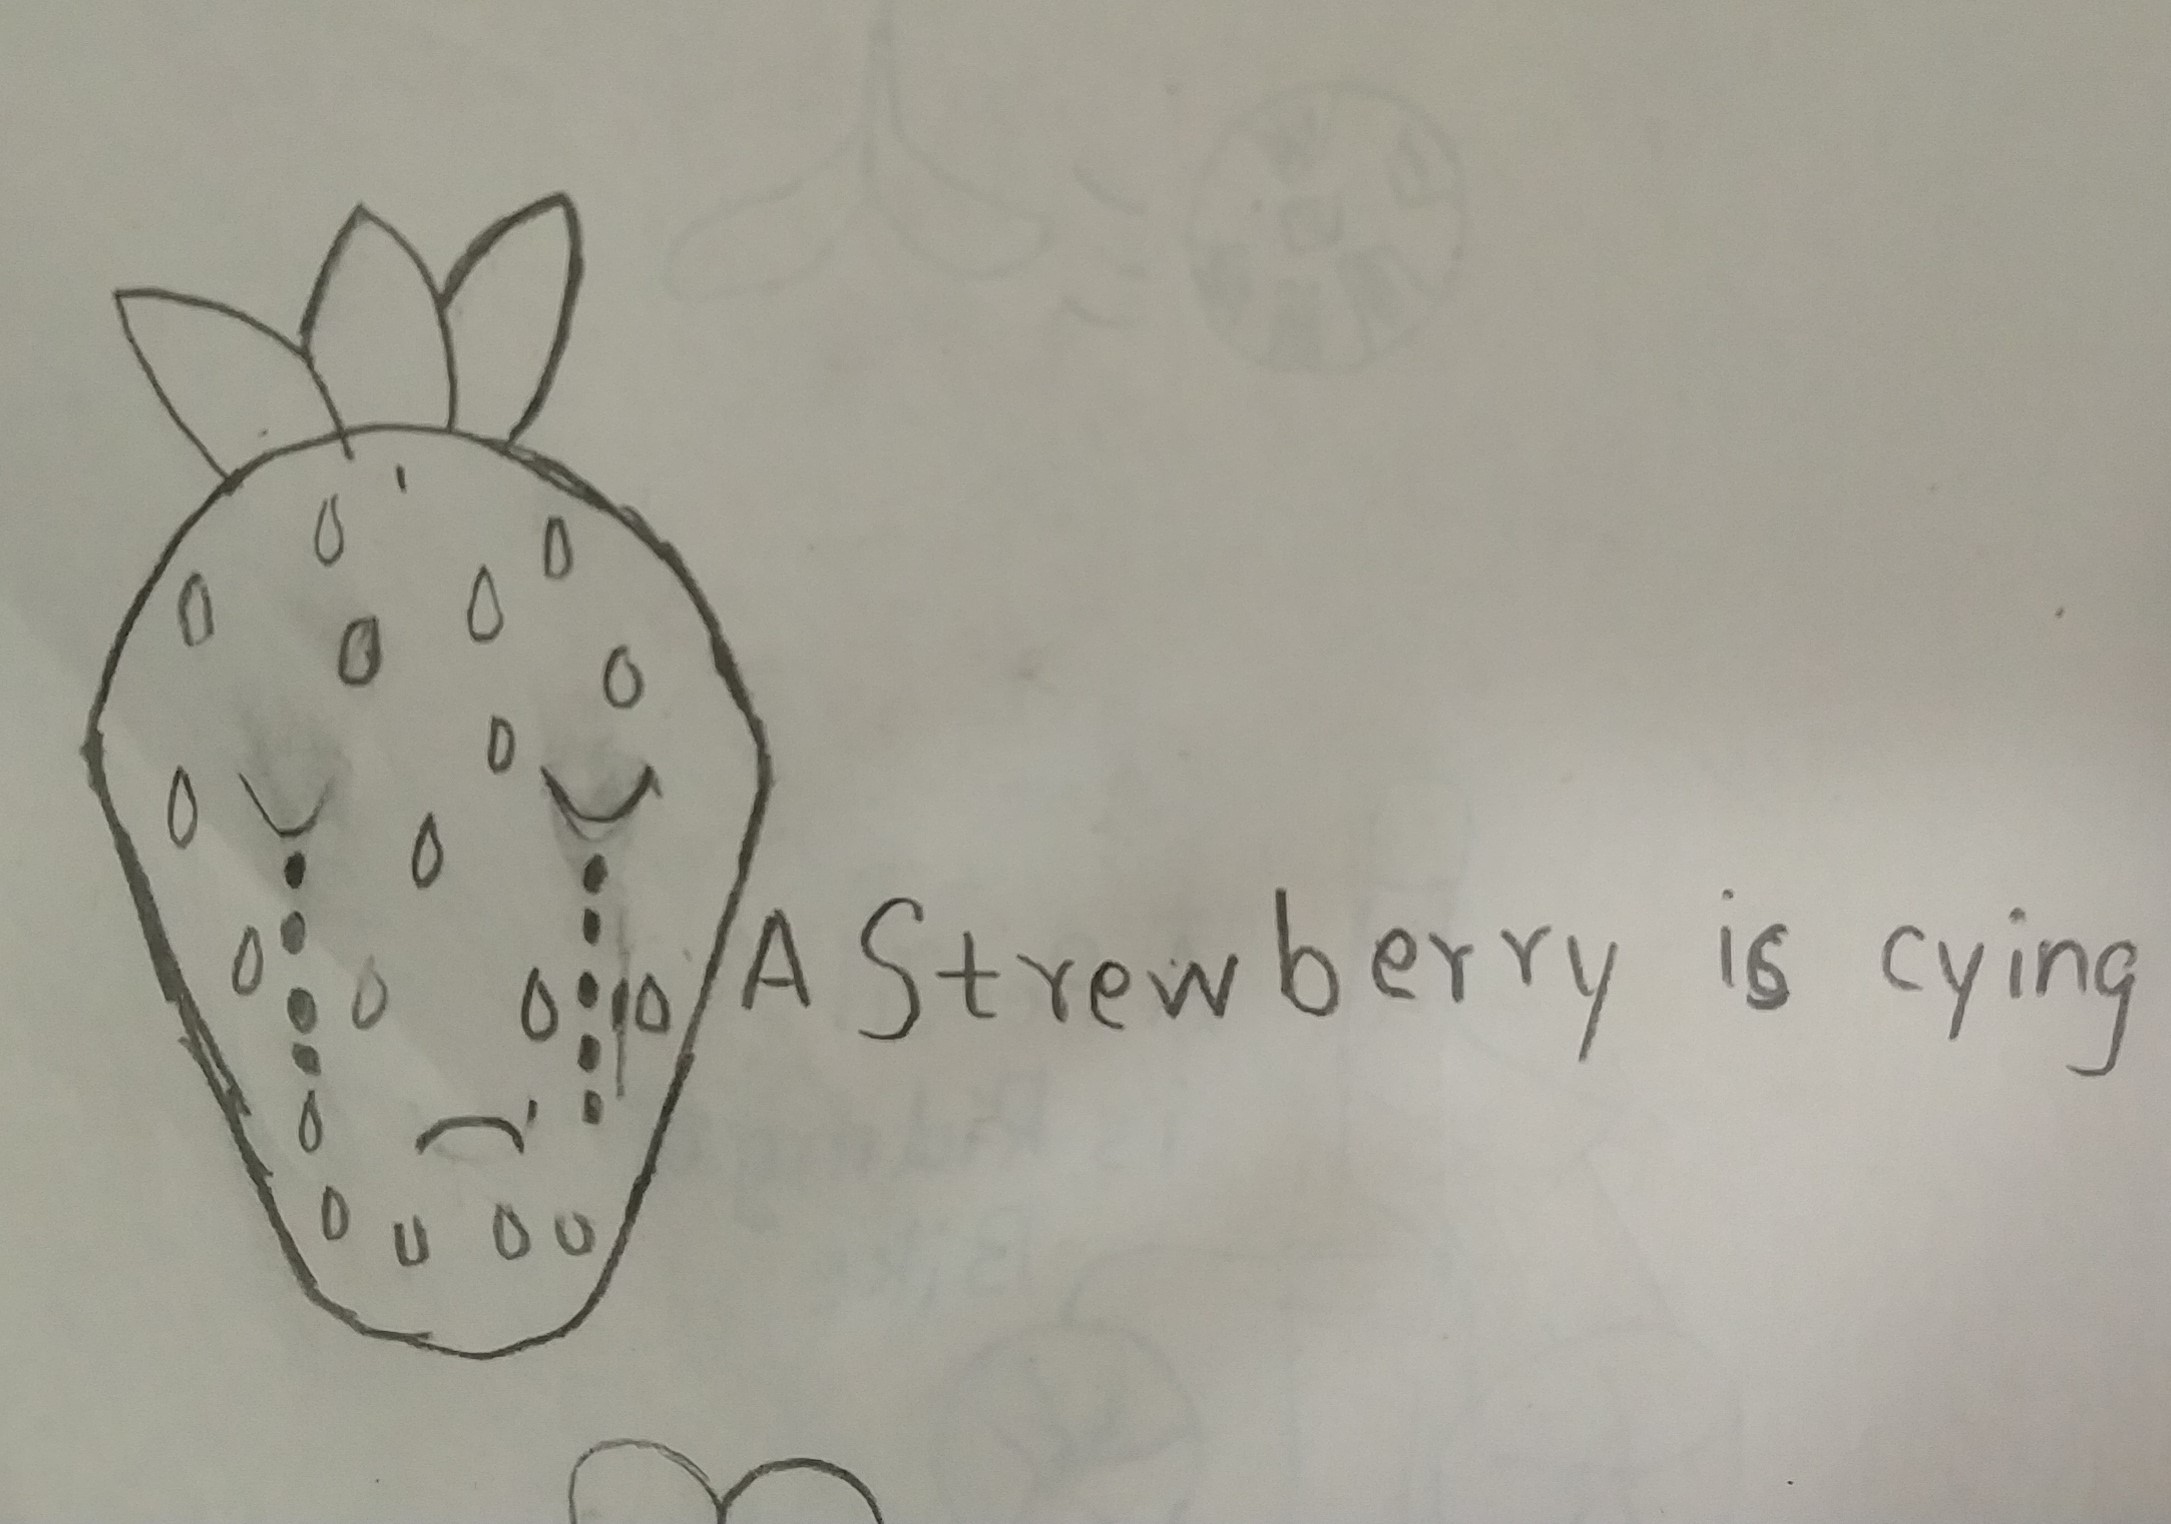 A Strewberry is cying